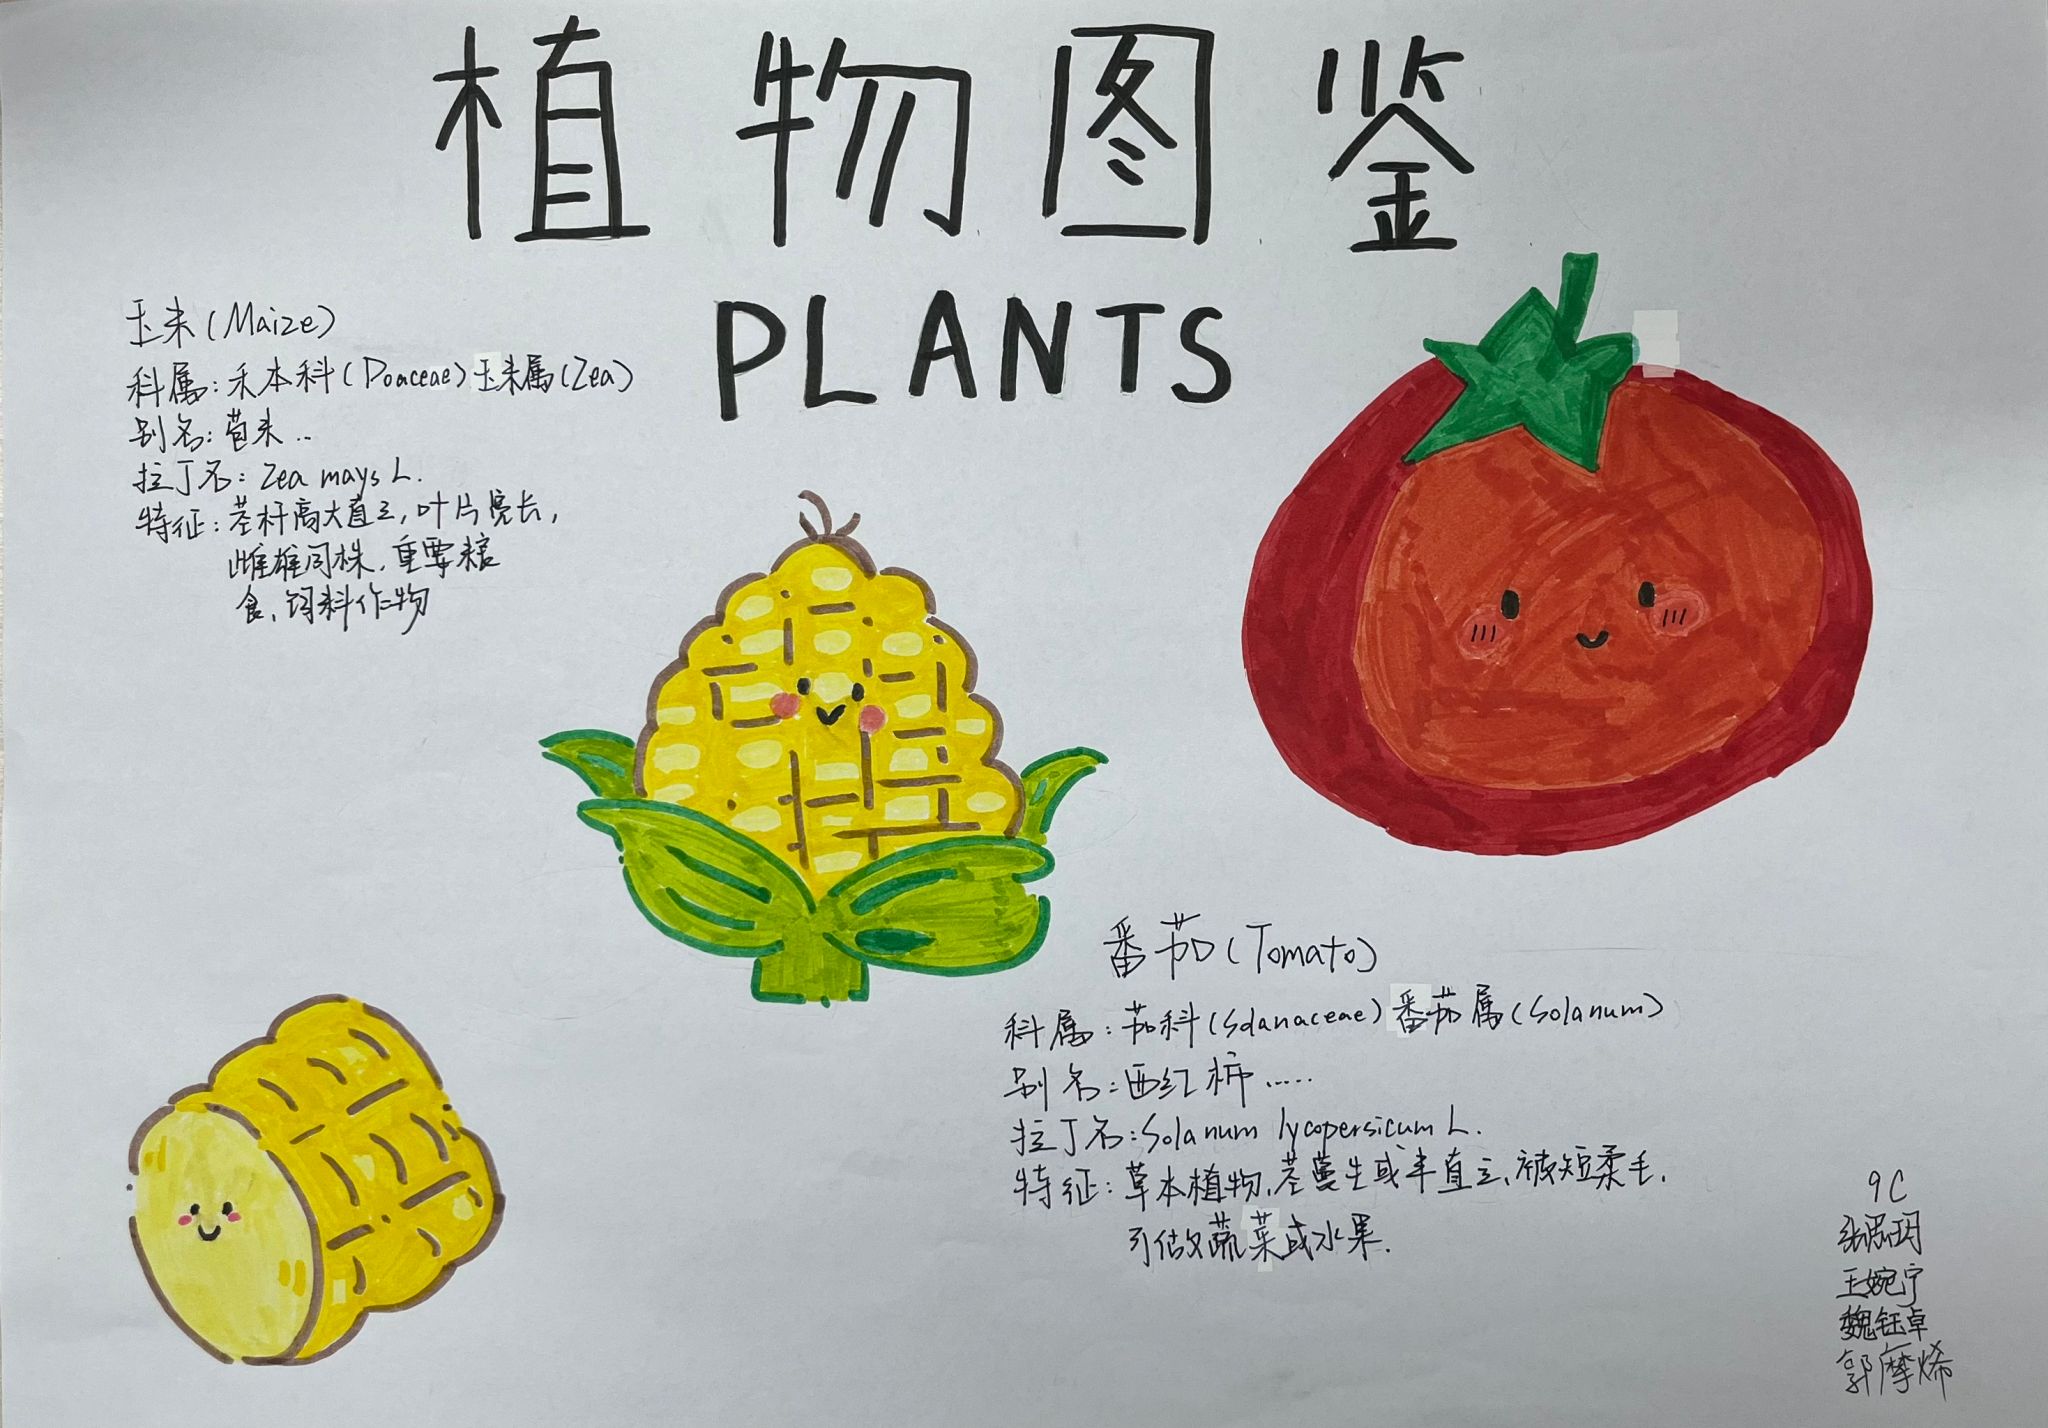 植物图鉴
PLANTS
玉米(Maize)
科属:禾本科(Poaceae)玉米属(Zea)
别名:苞米..
拉丁名:Zea mays L.
特征:茎杆高大直立,叶片宽长,
雌雄同株,重要粮
食,饲料作物
番茄(Tomato)
科属:茄科(Solanaceae)番茄属(Solanum)
别名:西红柿......
拉丁名:Solanum lycopersicum L.
特征:草本植物,茎蔓生或半直立,被短柔毛,
可做蔬菜或水果.
9C
王婉宁
魏钰卓
郭摩烯